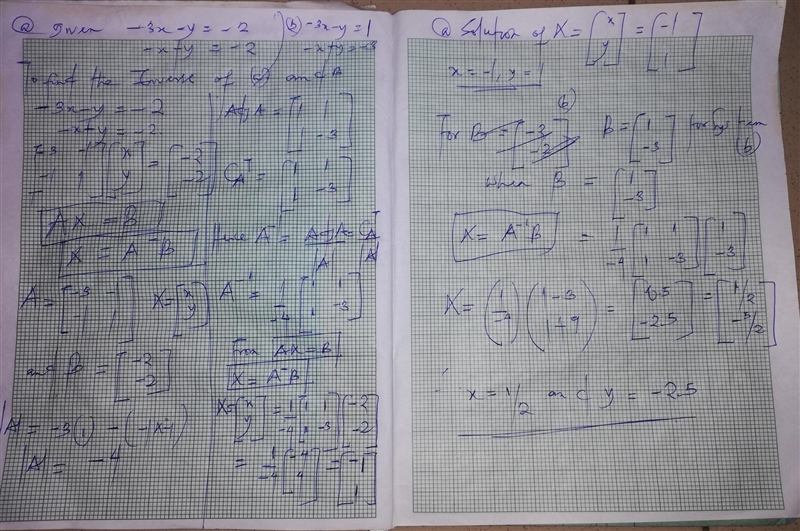 (a) Given -3x-y = -2
-x+y = -2
(b) -3x-y = 1
-x+y = -3
To find the Inverse of (a) and B
-3x-y = -2
-x+y = -2
[-3 -1
-1 1] [x
y] = [-2
-2]
AX = B
X = A⁻¹B
A = [-3 -1
-1 1] X = [x
y]
and B = [-2
-2]
|A| = -3(1) - (-1x-1)
|A| = -4
Adj A = [1 1
1 -3]
C_A^T = [1 1
1 -3]
Hence A⁻¹ = Adj A / |A| = C_A^T / |A|
A⁻¹ = 1/-4 [1 1
1 -3]
From AX = B
X = A⁻¹B
X = [x
y] = 1/-4 [1 1
1 -3] [-2
-2]
= 1/-4 [-4
4] = [-1
1]
(a) Solution of X = [x
y] = [-1
1]
x = -1, y = 1
b)
For B = [-2
-2] B = [1
-3] for System (b)
when B = [1
-3]
X = A⁻¹B = 1/-4 [1 1
1 -3] [1
-3]
X = (1/-4) (1-3
1+9) = [0.5
-2.5] = [1/2
-5/2]
∴ x = 1/2 and y = -2.5